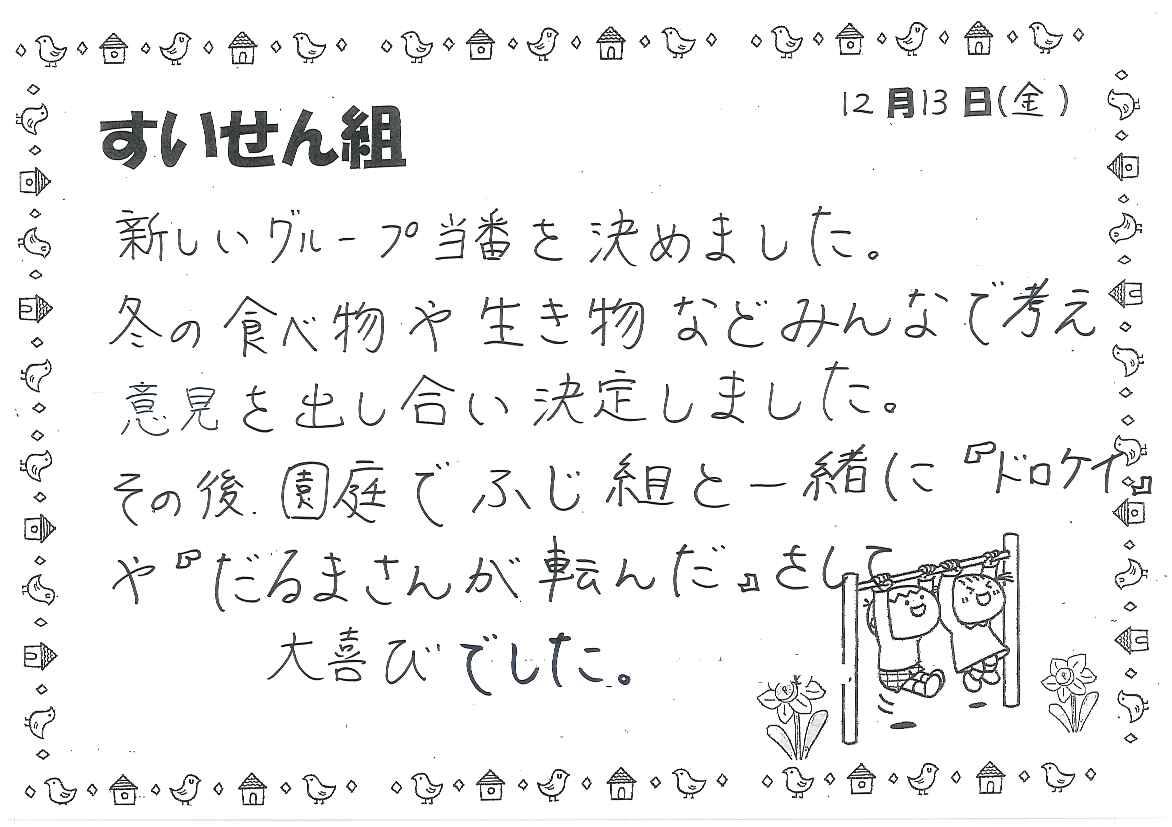 12月13日(金)
すいせん組
新しいグループ当番を決めました。
冬の食べ物や生き物などみんなで考え
意見を出し合い決定しました。
その後、園庭でふじ組と一緒に『ドロケイ』
や『だるまさんが転んだ』をして
大喜びでした。